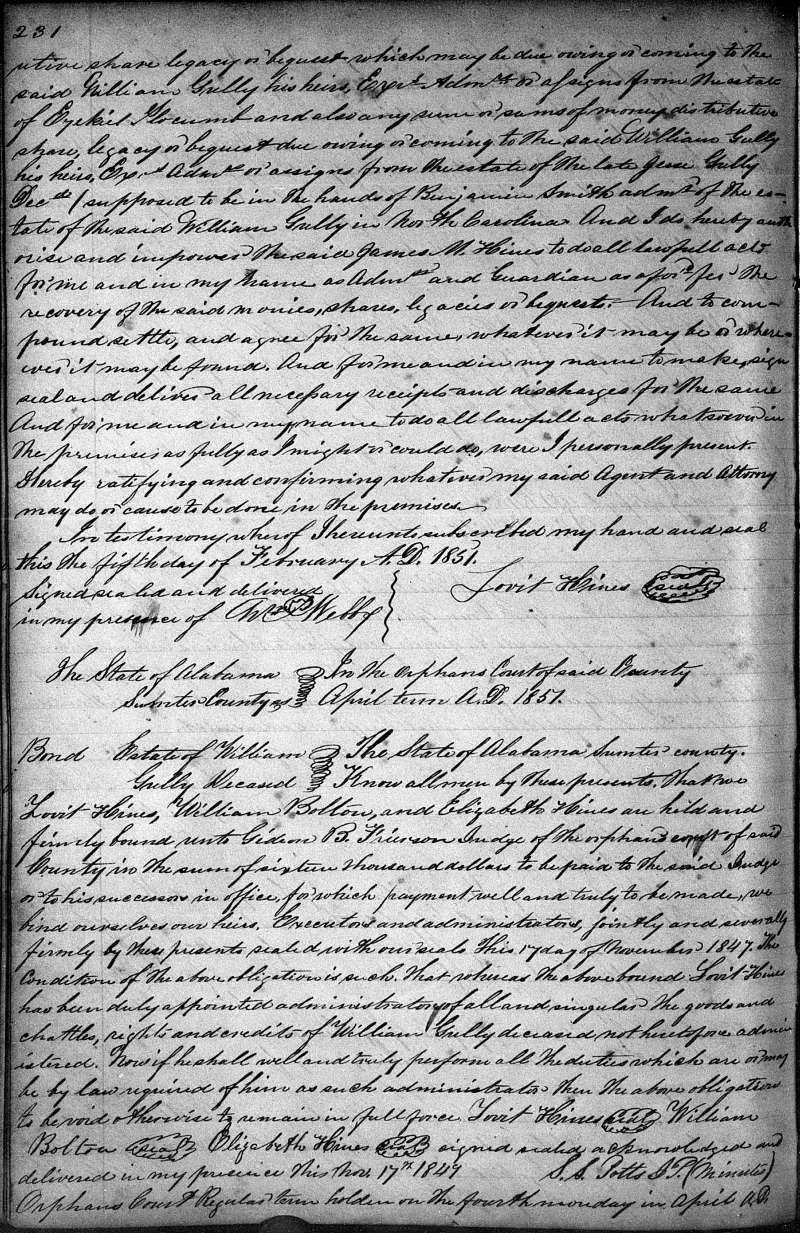 231
utive share legacy or bequest which may be due owing or coming to the
said William Gully his heirs, Exrs Admrs or assigns from the estate
of Ezekiel Slocumb and also any sum or sums of money distributive
share, legacy or bequest due owing or coming to the said William Gully
his heirs, Exrs Admrs or assigns from the estate of the late Jesse Gully
Decd (supposed to be in the hands of Benjamin Smith admr of the es-
tate of the said William Gully in North Carolina. And I do hereby auth
orise and impower the said James M. Hines to do all lawfull acts
for me and in my name as Admr and Guardian as aford for the
recovery of the said monies, shares, legacies or bequests. And to com-
pound settle, and agree for the same, whatever it may be or where-
ever it may be found. And for me and in my name to make, sign
seal and deliver all necessary receipts and discharges for the same
And for me and in my name to do all lawfull acts whatsoever in
the premises as fully as I might or could do, were I personally present.
Hereby ratifying and confirming whatever my said Agent and Attorny
may do or cause to be done in the premises.
In testimony whereof I hereunto subscribed my hand and seal
this the fifth day of February A.D. 1851.
Signed sealed and delivered Lovit Hines seal
in my presence of Webb
The State of Alabama In the Orphans Court of said County
Sumter County April term A.D. 1851.
Bond Estate of William The State of Alabama Sumter county.
Gully Deceased Know all men by these presents. That we
Lovit Hines, William Bolton, and Elizabeth Hines are held and
firmly bound unto Gideon B. Frierson Judge of the orphans court of said
County in the sum of sixteen thousand dollars to be paid to the said Judge
or to his successor in office, for which payment well and truly to be made, we
bind ourselves our heirs, Executors and administrators, jointly and severally
firmly by these presents sealed with our seals this 17 day of November 1847. The
Condition of the above obligation is such. That whereas the above bound Lovit Hines
has been duly appointed administrator of all and singular the goods and
chattles, rights and credits of William Gully deceased not heretofore admin
istered. Now if he shall well and truly perform all the duties which are or may
be by law required of him as such administrator then the above obligation
to be void otherwise to remain in full force. Lovit Hines seal William
Bolton seal Elizabeth Hines seal signed sealed acknowledged and
delivered in my presence this Nov. 17th 1847 S. S. Potts J.P. (Minutes)
Orphans Court Regular term holden on the fourth monday in April A.D.